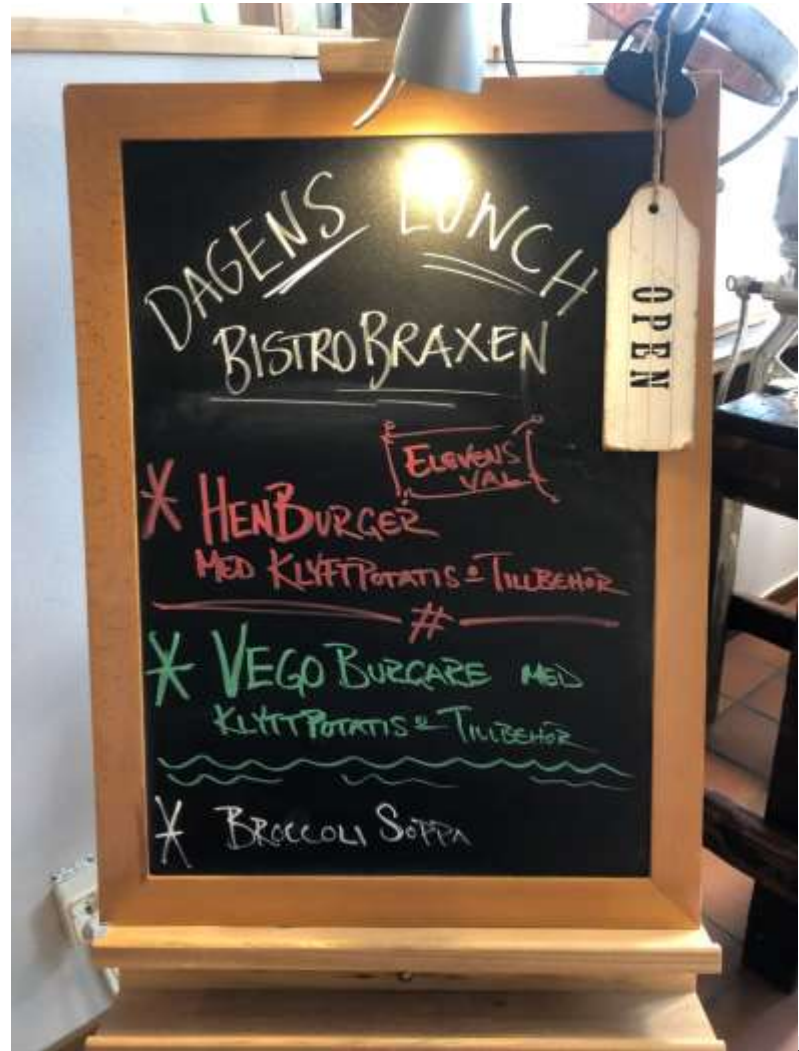 DAGENS LUNCH
BISTRO BRAXEN
OPEN
ELEVENS
VAL
* HENBURGER
MED KLYFTPOTATIS & TILLBEHÖR
#
* VEGO BURGARE MED
KLYFTPOTATIS & TILLBEHÖR
* BROCCOLI SOPPA